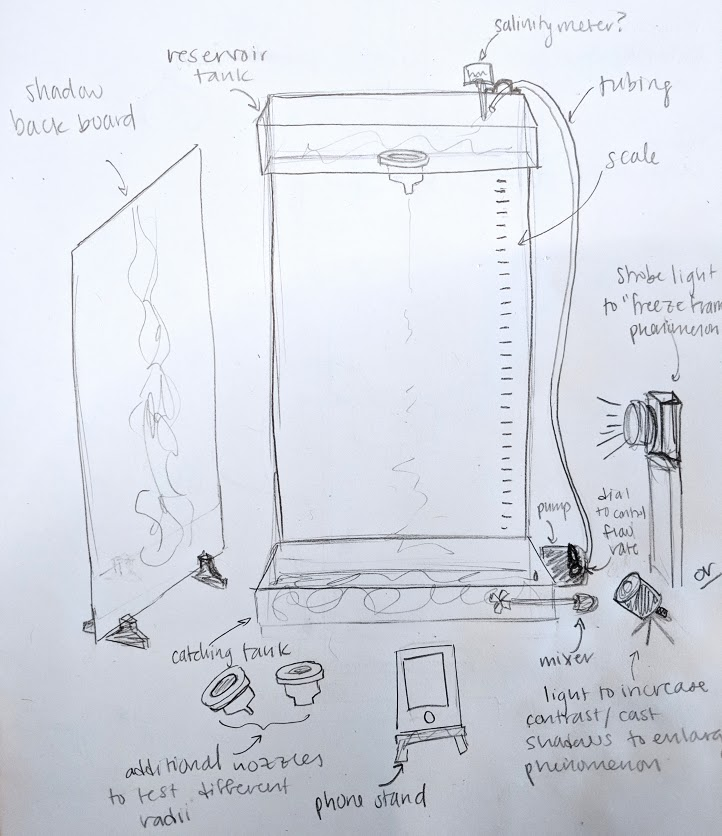 salinity meter?
reservoir
tank
shadow
back board
tubing
scale
strobe light
to "freeze fram
phenomenon
pump
dial
to control
flow
rate
or
catching tank
mixer
light to increase
contrast/cast
shadows to enlarg
phenomenon
additional nozzles
to test different
radii
phone stand